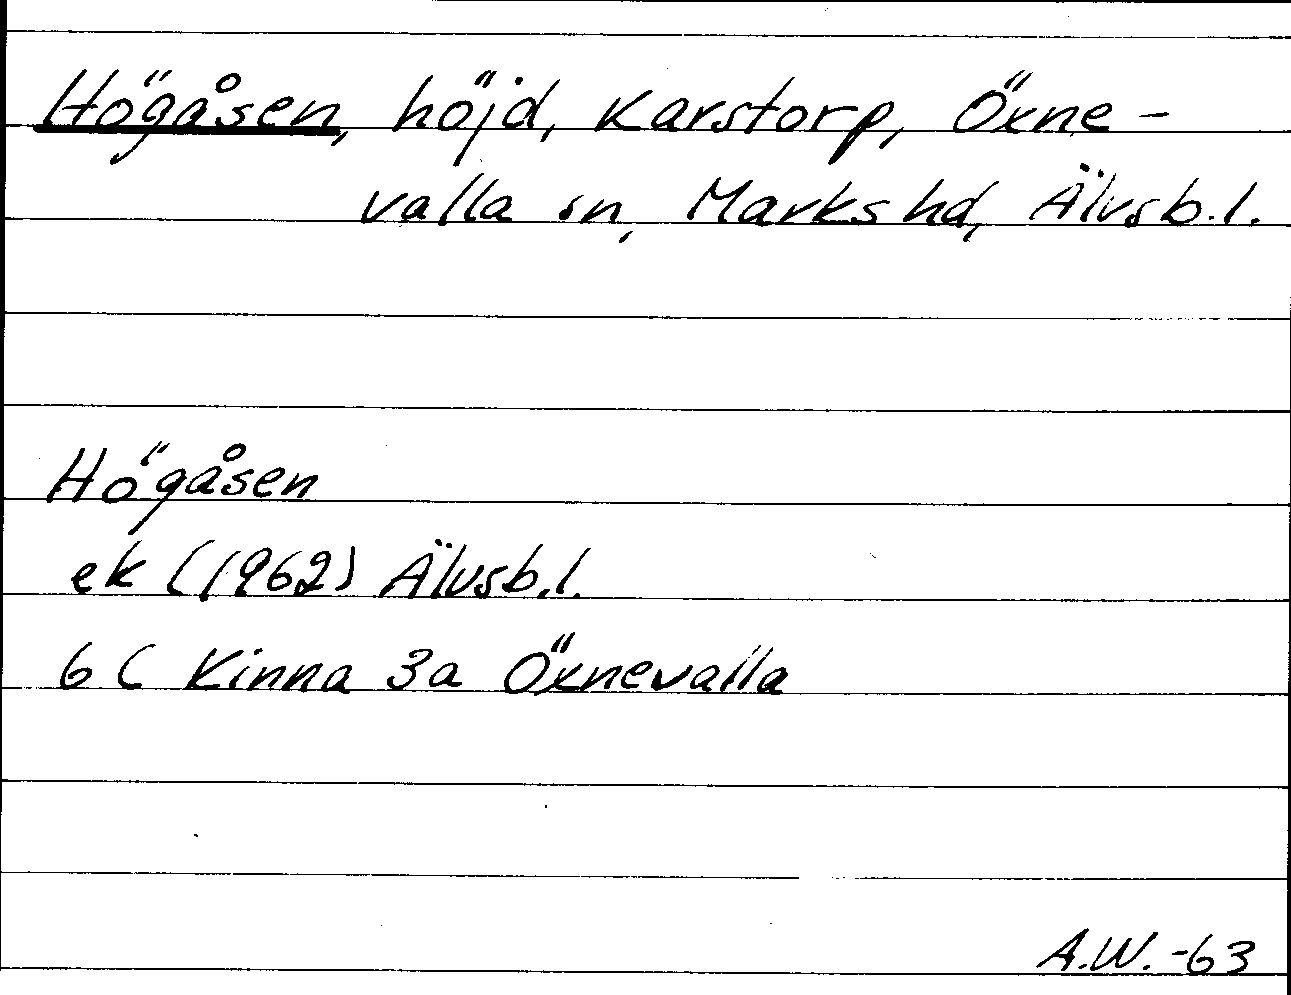 Högåsen, höjd, Karstorp, Öxne-
valla sn, Marks hd, Älvsb.l.
Högåsen
ek (1962) Älvsb.l.
6 C Kinna 3a Öxnevalla
A.W. -63